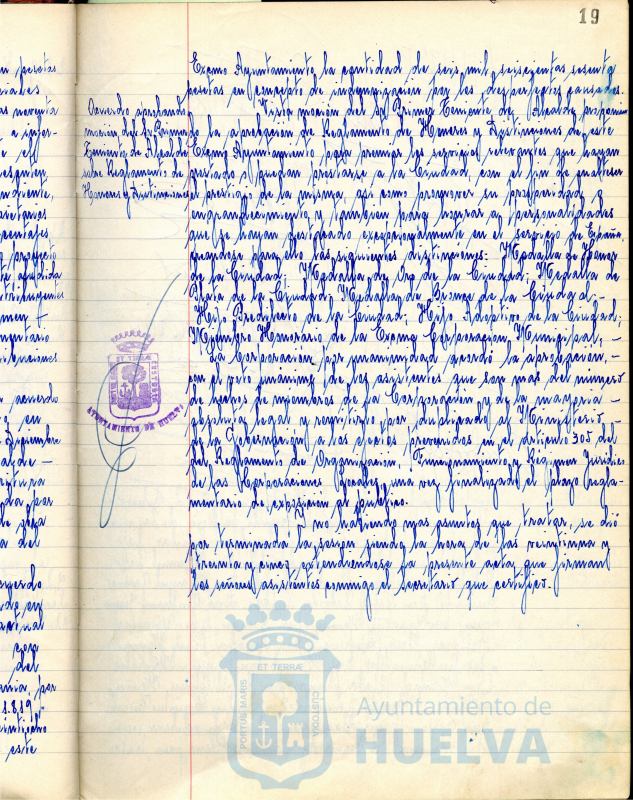 19
Excmo Ayuntamiento, la cantidad de seis mil seiscientas sesenta
pesetas en concepto de indemnización por los desperfectos causados.
Acuerdo aprobando
moción del Sr Primer
Teniente de Alcalde
sobre Reglamento de
Honores y Distinciones
Vista moción del Sr Primer Teniente de Alcalde proponien
do la aprobación de Reglamento de Honores y Distinciones de este
Excmo Ayuntamiento para premiar los servicios relevantes que hayan
prestado o puedan prestarse a la Ciudad, con el fin de enaltecer
el prestigio de la misma, así como promover su prosperidad o
engrandecimiento, y tambien para honrar a personalidades
que se hayan destacado excepcionalmente en el servicio de España,
creandose para ello las siguientes distinciones: Medalla de Honor
de la Ciudad; Medalla de Oro de la Ciudad; Medalla de
Plata de la Ciudad; Medalla de Bronce de la Ciudad;
Hijo Predilecto de la Ciudad; Hijo Adoptivo de la Ciudad;
Miembro Honorario de la Excma Corporación Municipal, –
La Corporación por unanimidad acordó la aprobación, –
con el voto unanime de los asistentes que son mas del numero
de hechos de miembros de la Corporación y de la mayoria –
absoluta legal, y remitirlo por duplicado al Ministerio –
de la Gobernación a los efectos prevenidos en el artículo 305 del
del Reglamento de Organización, Funcionamiento y Regimen Juridico
de las Corporaciones Locales, una vez finalizado el plazo regla-
mentario de exposición al público.
Y no habiendo mas asuntos que tratar, se dió
por terminada la sesion siendo la hora de las veintiuna y
treinta y cinco extendiendose la presente acta que firman
los señores asistentes conmigo el Secretario que certifico.
ET TERRÆ
PORTUS MARIS
CUSTODIA
AYUNTAMIENTO DE HUELVA
ET TERRÆ
PORTUS MARIS
CUSTODIA
Ayuntamiento de
HUELVA